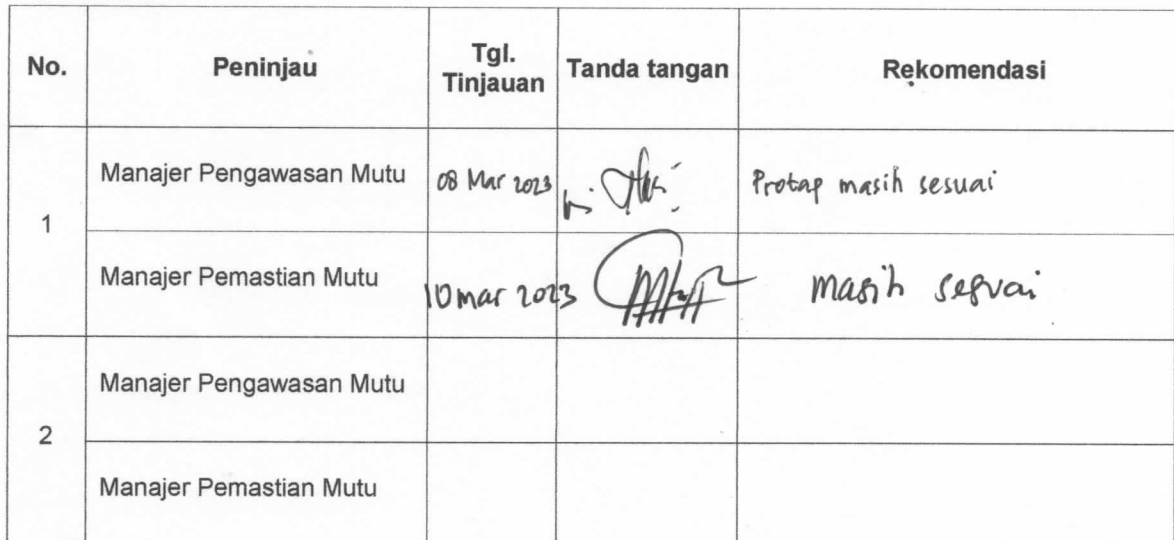 No. Peninjau Tgl. Tinjauan Tanda tangan Rekomendasi
1 Manajer Pengawasan Mutu 08 Mar 2023 Protap masih sesuai
Manajer Pemastian Mutu 10 mar 2023 masih sesuai
2 Manajer Pengawasan Mutu
Manajer Pemastian Mutu